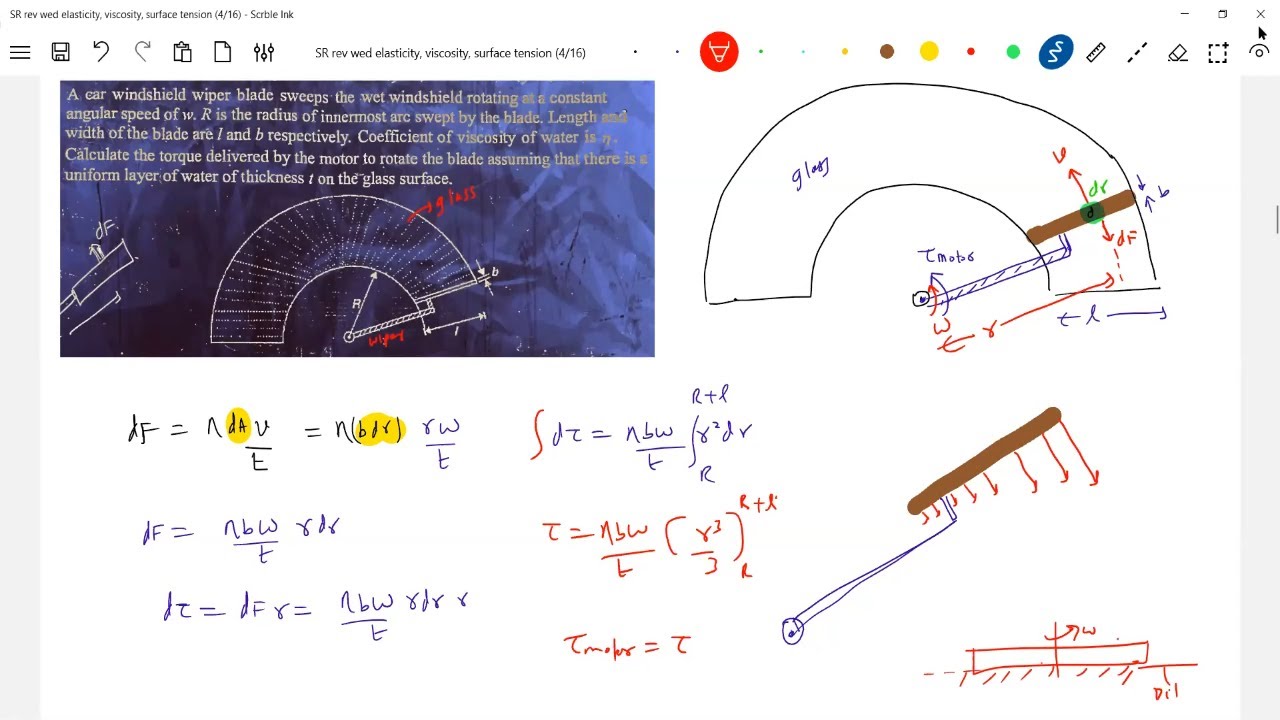 SR rev wed elasticity, viscosity, surface tension (4/16) - Scrble Ink
SR rev wed elasticity, viscosity, surface tension (4/16)
A car windshield wiper blade sweeps the wet windshield rotating at a constant
angular speed of w. R is the radius of innermost arc swept by the blade. Length and
width of the blade are l and b respectively. Coefficient of viscosity of water is η.
Calculate the torque delivered by the motor to rotate the blade assuming that there is a
uniform layer of water of thickness t on the glass surface.
glass
dF
R
b
l
wiper
glass
v
dr
b
d
dF
τmotor
ω
r
l
dF = η dA v/t = η(bdr) rω/t
∫dτ = ηbω/t ∫_R^{R+l} r²dr
dF = ηbω/t rdr
τ = ηbω/t (r³/3)_R^{R+l}
dτ = dF r = ηbω/t rdr r
τmotor = τ
ω
Oil